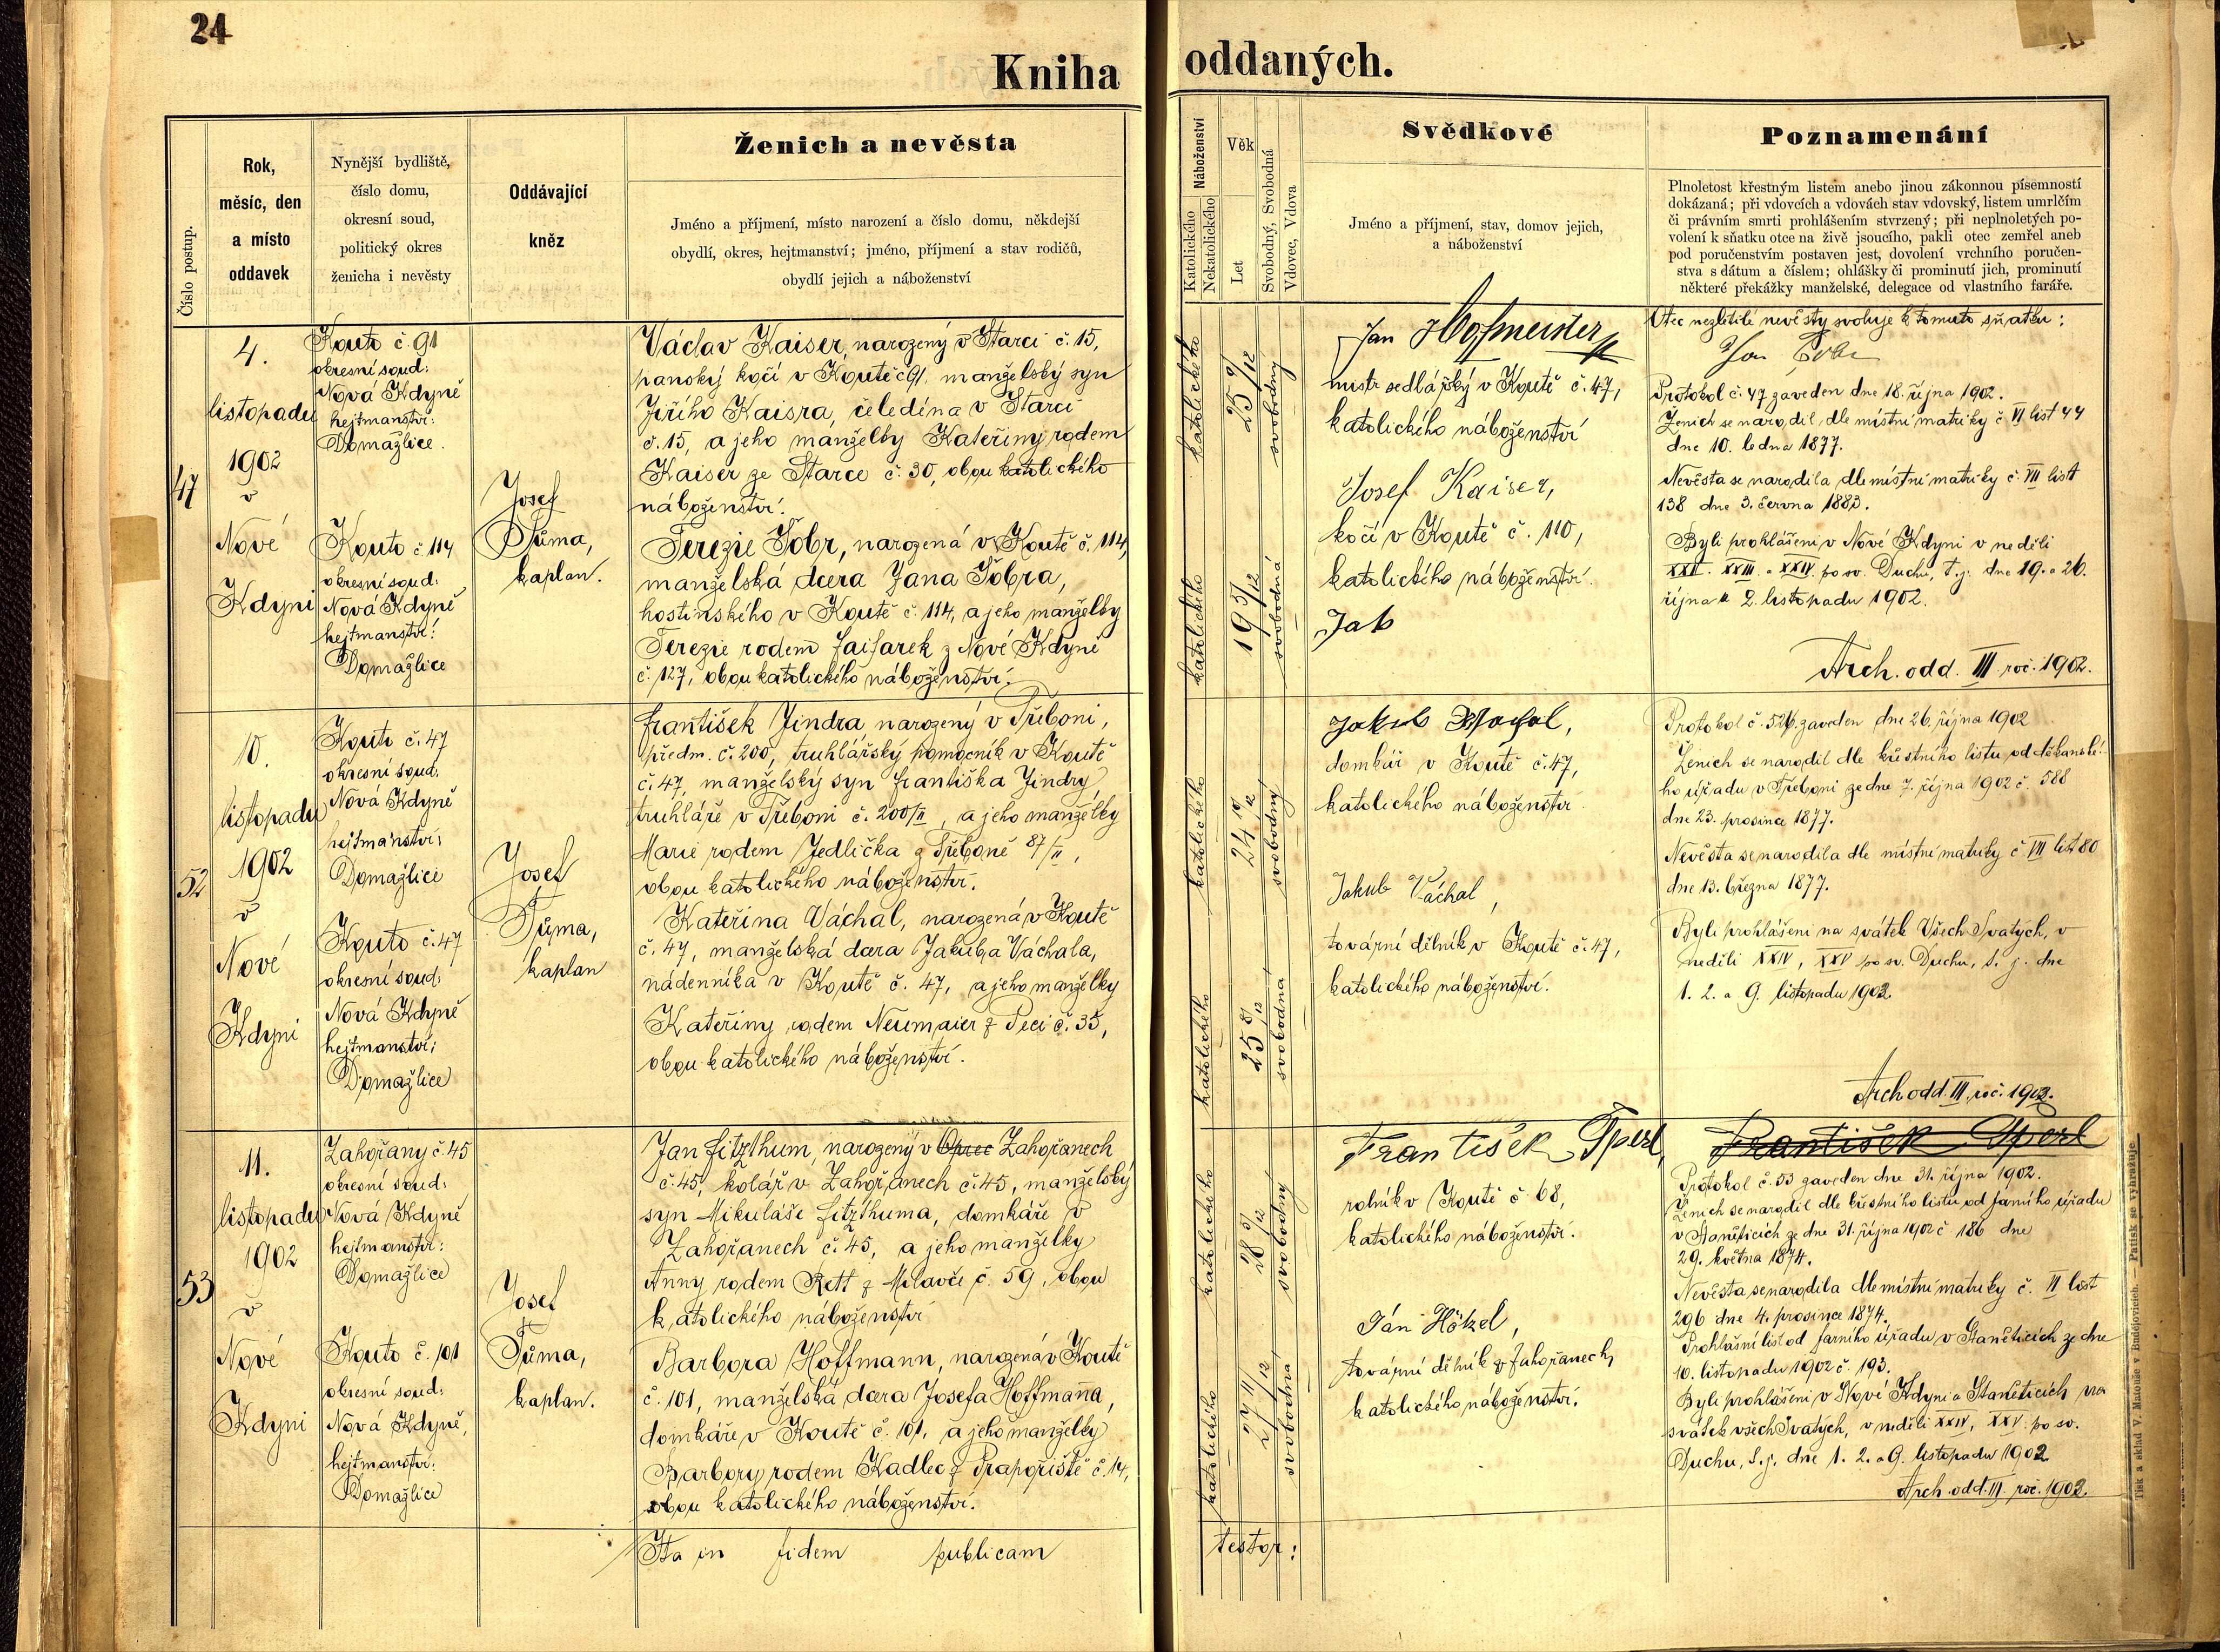 24
Kniha
oddaných.
Číslo postup.
Rok,
měsíc, den
a místo
oddavek
Nynější bydliště,
číslo domu,
okresní soud,
politický okres
ženicha i nevěsty
Oddávající
kněz
Ženich a nevěsta
Jméno a příjmení, místo narození a číslo domu, někdejší
obydlí, okres, hejtmanství; jméno, příjmení a stav rodičů,
obydlí jejich a náboženství
Náboženství
Katolického
Nekatolického
Věk
Let
Svobodný, Svobodná
Vdovec, Vdova
Svědkové
Jméno a příjmení, stav, domov jejich,
a náboženství
Poznamenání
Plnoletost křestným listem anebo jinou zákonnou písemností
dokázaná; při vdovcích a vdovách stav vdovský, listem umrlčím
či právním smrti prohlášením stvrzený; při neplnoletých po-
volení k sňatku otce na živě jsoucího, pakli otec zemřel aneb
pod poručenstvím postaven jest, dovolení vrchního poručen-
stva s dátum a číslem; ohlášky či prominutí jich, prominutí
některé překážky manželské, delegace od vlastního faráře.
47
4.
listopadu
1902
v
Nové
Kdyni
Kouto č. 91
okresní soud:
Nová Kdyně
hejtmanství:
Domažlice.
Kouto č. 114
okresní soud:
Nová Kdyně
hejtmanství:
Domažlice
Josef
Tůma,
kaplan.
Václav Kaiser, narozený v Starci č. 15,
panský kočí v Koutě č 91, manželský syn
Jiřího Kaisra, čeledína v Starci
č. 15, a jeho manželky Kateřiny rodem
Kaiser ze Starce č. 30, obou katolického
náboženství.
Terezie Šobr, narozená v Koutě č. 114,
manželská dcera Jana Šobra,
hostinského v Koutě č. 114, a jeho manželky
Terezie rodem Faifarek z Nové Kdyně
č. 127, obou katolického náboženství.
katolického
25 9/12
svobodný
katolického
19 5/12
svobodná
Jan Hofmeister
mistr sedlářský v Koutě č. 47,
katolického náboženství
Josef Kaiser,
kočí v Koutě č. 110,
katolického náboženství.
Jak
Otec nezletilé nevěsty svoluje k tomuto sňatku:
Protokol č. 47 zaveden dne 18. října 1902.
Ženich se narodil dle místní matriky č. VI list 44
dne 10. ledna 1877.
Nevěsta se narodila dle místní matriky č. VII list
138 dne 3. června 1883.
Byli prohlášeni v Nové Kdyni v neděli
XXII. XXIII. a XXIV. po sv. Duchu, t. j. dne 19. a 26.
října a 2. listopadu 1902.
Arch. odd. III. roč. 1902.
52
10.
listopadu
1902
v
Nové
Kdyni
Kouto č. 47
okresní soud:
Nová Kdyně
hejtmanství:
Domažlice
Kouto č. 47
okresní soud:
Nová Kdyně
hejtmanství:
Domažlice
Josef
Tůma,
kaplan
František Jindra narozený v Třeboni,
předm. č. 200, truhlářský pomocník v Koutě
č. 47, manželský syn Františka Jindry,
truhláře v Třeboni č. 200/II, a jeho manželky
Marie rodem Jedlička z Třeboně 87/II,
obou katolického náboženství.
Kateřina Váchal, narozená v Koutě
č. 47, manželská dcera Jakuba Váchala,
nádenníka v Koutě č. 47, a jeho manželky
Kateřiny rodem Neumaier z Peci č. 35,
obou katolického náboženství.
katolického
24 10/12
svobodný
katolického
25 8/12
svobodná
Jakub Wachal,
domkář v Koutě č. 47,
katolického náboženství
Jakub Váchal,
tovární dělník v Koutě č. 47,
katolického náboženství.
Protokol č. 52 zaveden dne 26. října 1902
Ženich se narodil dle křestního listu od děkanské-
ho úřadu v Třeboni ze dne 7. října 1902 č. 588
dne 23. prosince 1877.
Nevěsta se narodila dle místní matriky č. VII list 80
dne 13. března 1877.
Byli prohlášeni na svátek Všech Svatých, v
neděli XXIV, XXV po sv. Duchu, t. j. dne
1. 2. a 9. listopadu 1902.
Arch. odd. III. roč. 1902.
53
11.
listopadu
1902
v
Nové
Kdyni
Zahořany č. 45
okresní soud:
Nová Kdyně
hejtmanství:
Domažlice
Kouto č. 101
okresní soud:
Nová Kdyně,
hejtmanství:
Domažlice
Josef
Tůma,
kaplan.
Jan Fitzthum, narozený v Oprec Zahořanech
č. 45, kolář v Zahořanech č. 45, manželský
syn Mikuláše Fitzthuma, domkáře v
Zahořanech č. 45, a jeho manželky
Anny rodem Rett z Milavče č. 59, obou
katolického náboženství
Barbora Hoffmann, narozená v Koutě
č. 101, manželská dcera Josefa Hoffmanna,
domkáře v Koutě č. 101, a jeho manželky
Barbory rodem Kadlec z Prapořiště č. 14,
obou katolického náboženství.
katolického
28 5/12
svobodný
katolického
27 11/12
svobodná
František Šperl,
rolník v Koutě č. 68,
katolického náboženství.
Ján Hötzel,
tovární dělník z Zahořanech,
katolického náboženství.
František Šperl
Protokol č. 53 zaveden dne 31. října 1902.
Ženich se narodil dle křestního listu od farního úřadu
v Staněticích ze dne 31. října 1902 č. 186 dne
29. května 1874.
Nevěsta se narodila dle místní matriky č. VI list
296 dne 4. prosince 1874.
Prohlášní list od farního úřadu v Staněticích ze dne
10. listopadu 1902 č. 193.
Byli prohlášeni v Nové Kdyni a Staněticích na
svátek všech Svatých, v neděli XXIV, XXV po sv.
Duchu, t. j. dne 1. 2. a 9. listopadu 1902
Arch. odd. III. roč. 1902.
Ita in fidem publicam
testor:
Tisk a sklad V. Matouše v Budějovicích. — Patisk se vyhražuje.